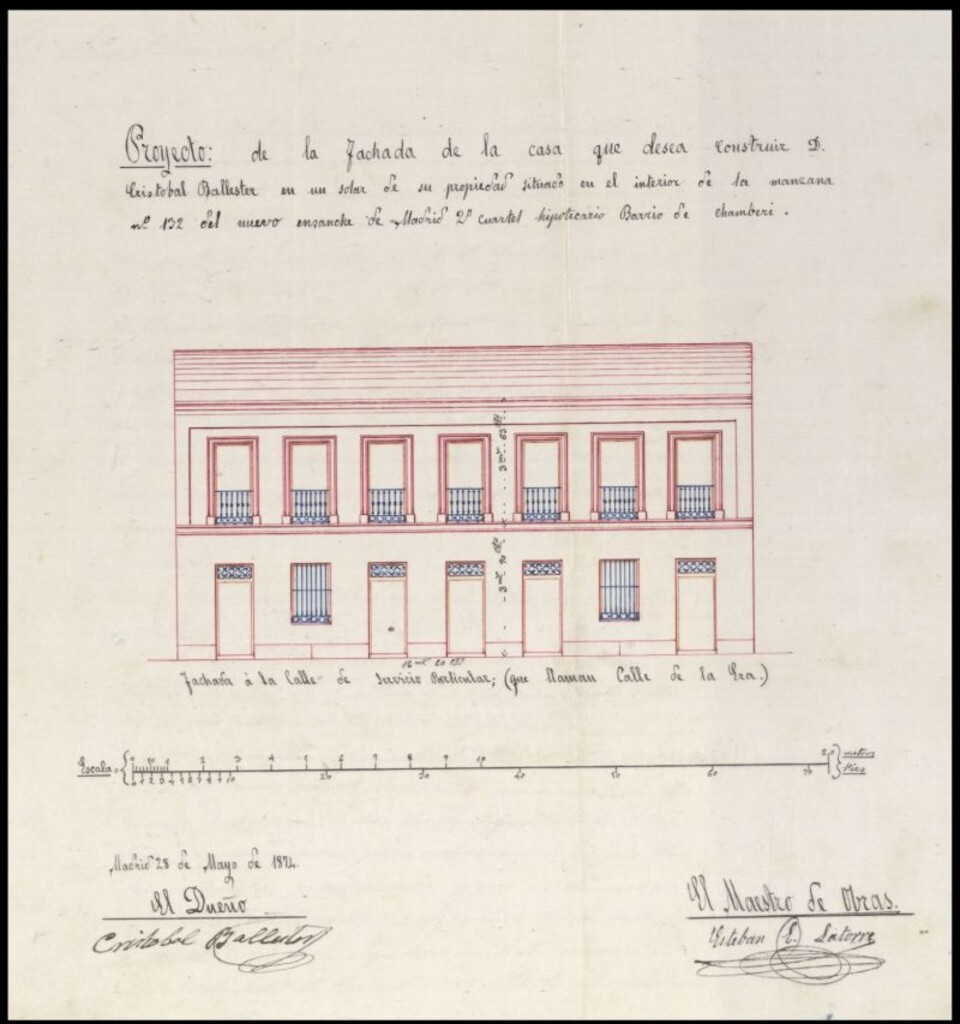 Proyecto: de la fachada de la casa que desea construir D.
Cristobal Ballester en un solar de su propiedad situado en el interior de la manzana
nº 132 del nuevo ensanche de Madrid 2º cuartel hipotecario Barrio de chamberi.
Fachada á la Calle de Servicio Particular; (que llaman Calle de la Era.)
Escala= 0 1 2 3 4 5 6 7 8 9 10 20 metros
10 20 30 40 50 60 70 Pies
Madrid 28 de Mayo de 1874.
El Dueño
Cristobal Ballester
El Maestro de Obras.
Esteban E. Latorre